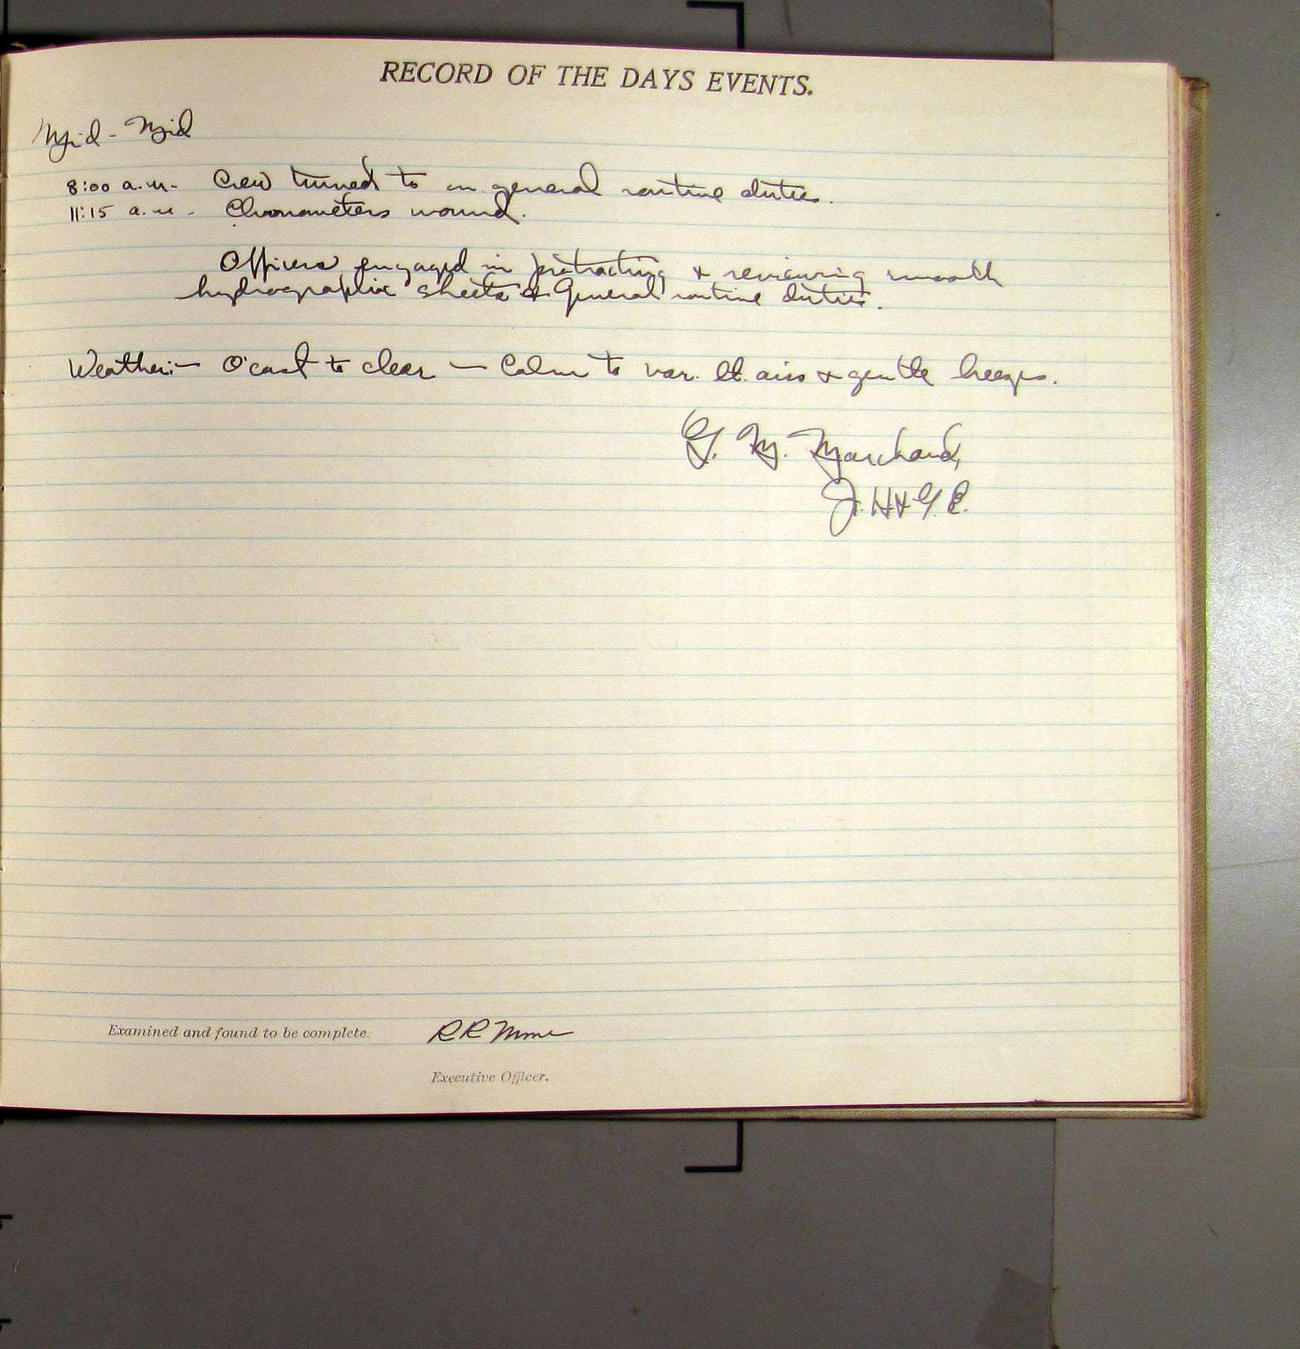 RECORD OF THE DAYS EVENTS.
Mid - Mid
8:00 a.m. - Crew turned to on general routine duties.
11:15 a.m. - Chronometers wound.
Officers engaged in protracting & reviewing smooth
hydrographic sheets & General routine duties.
Weather:— O'cast to clear — Calm to var. lt. airs & gentle breezes.
G. M. Marchand,
J. H & G. E.
Examined and found to be complete. R R Moore
Executive Officer.